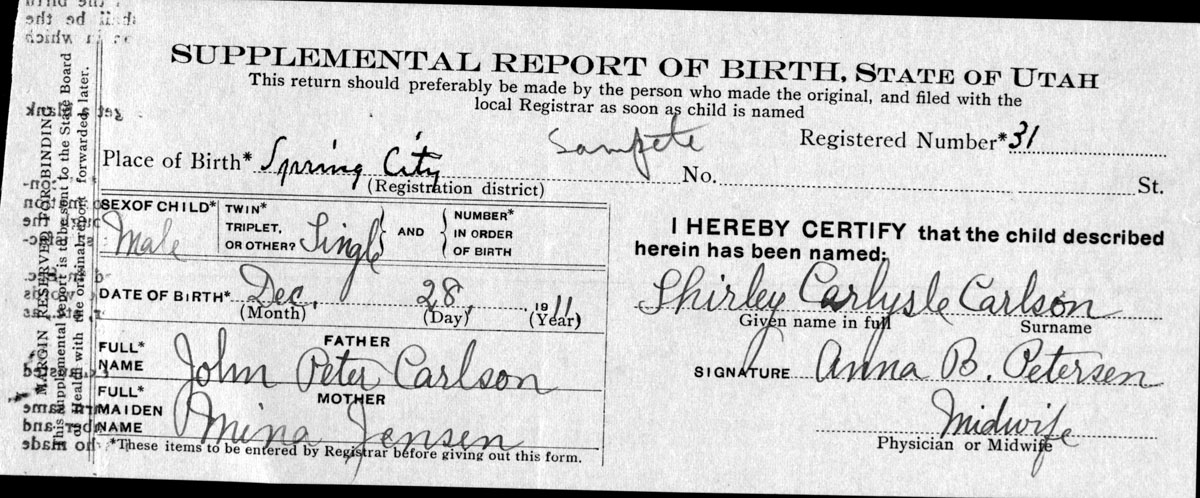 SUPPLEMENTAL REPORT OF BIRTH, STATE OF UTAH
This return should preferably be made by the person who made the original, and filed with the
local Registrar as soon as child is named
Sanpete
Registered Number* 31
Place of Birth* Spring City No. St.
(Registration district)
SEX OF CHILD* Male
TWIN* TRIPLET, OR OTHER? Single
AND
NUMBER* IN ORDER OF BIRTH
DATE OF BIRTH* Dec. 28, 1911
(Month) (Day) (Year)
FATHER
FULL* NAME John Peter Carlson
MOTHER
FULL* MAIDEN NAME Mina Jensen
*These items to be entered by Registrar before giving out this form.
I HEREBY CERTIFY that the child described
herein has been named:
Shirley Carlysle Carlson
Given name in full Surname
SIGNATURE Anna B. Petersen
Midwife
Physician or Midwife
MARGIN RESERVED FOR BINDING
This supplemental report is to be sent to the State Board
of Health with the original report forwarded later.